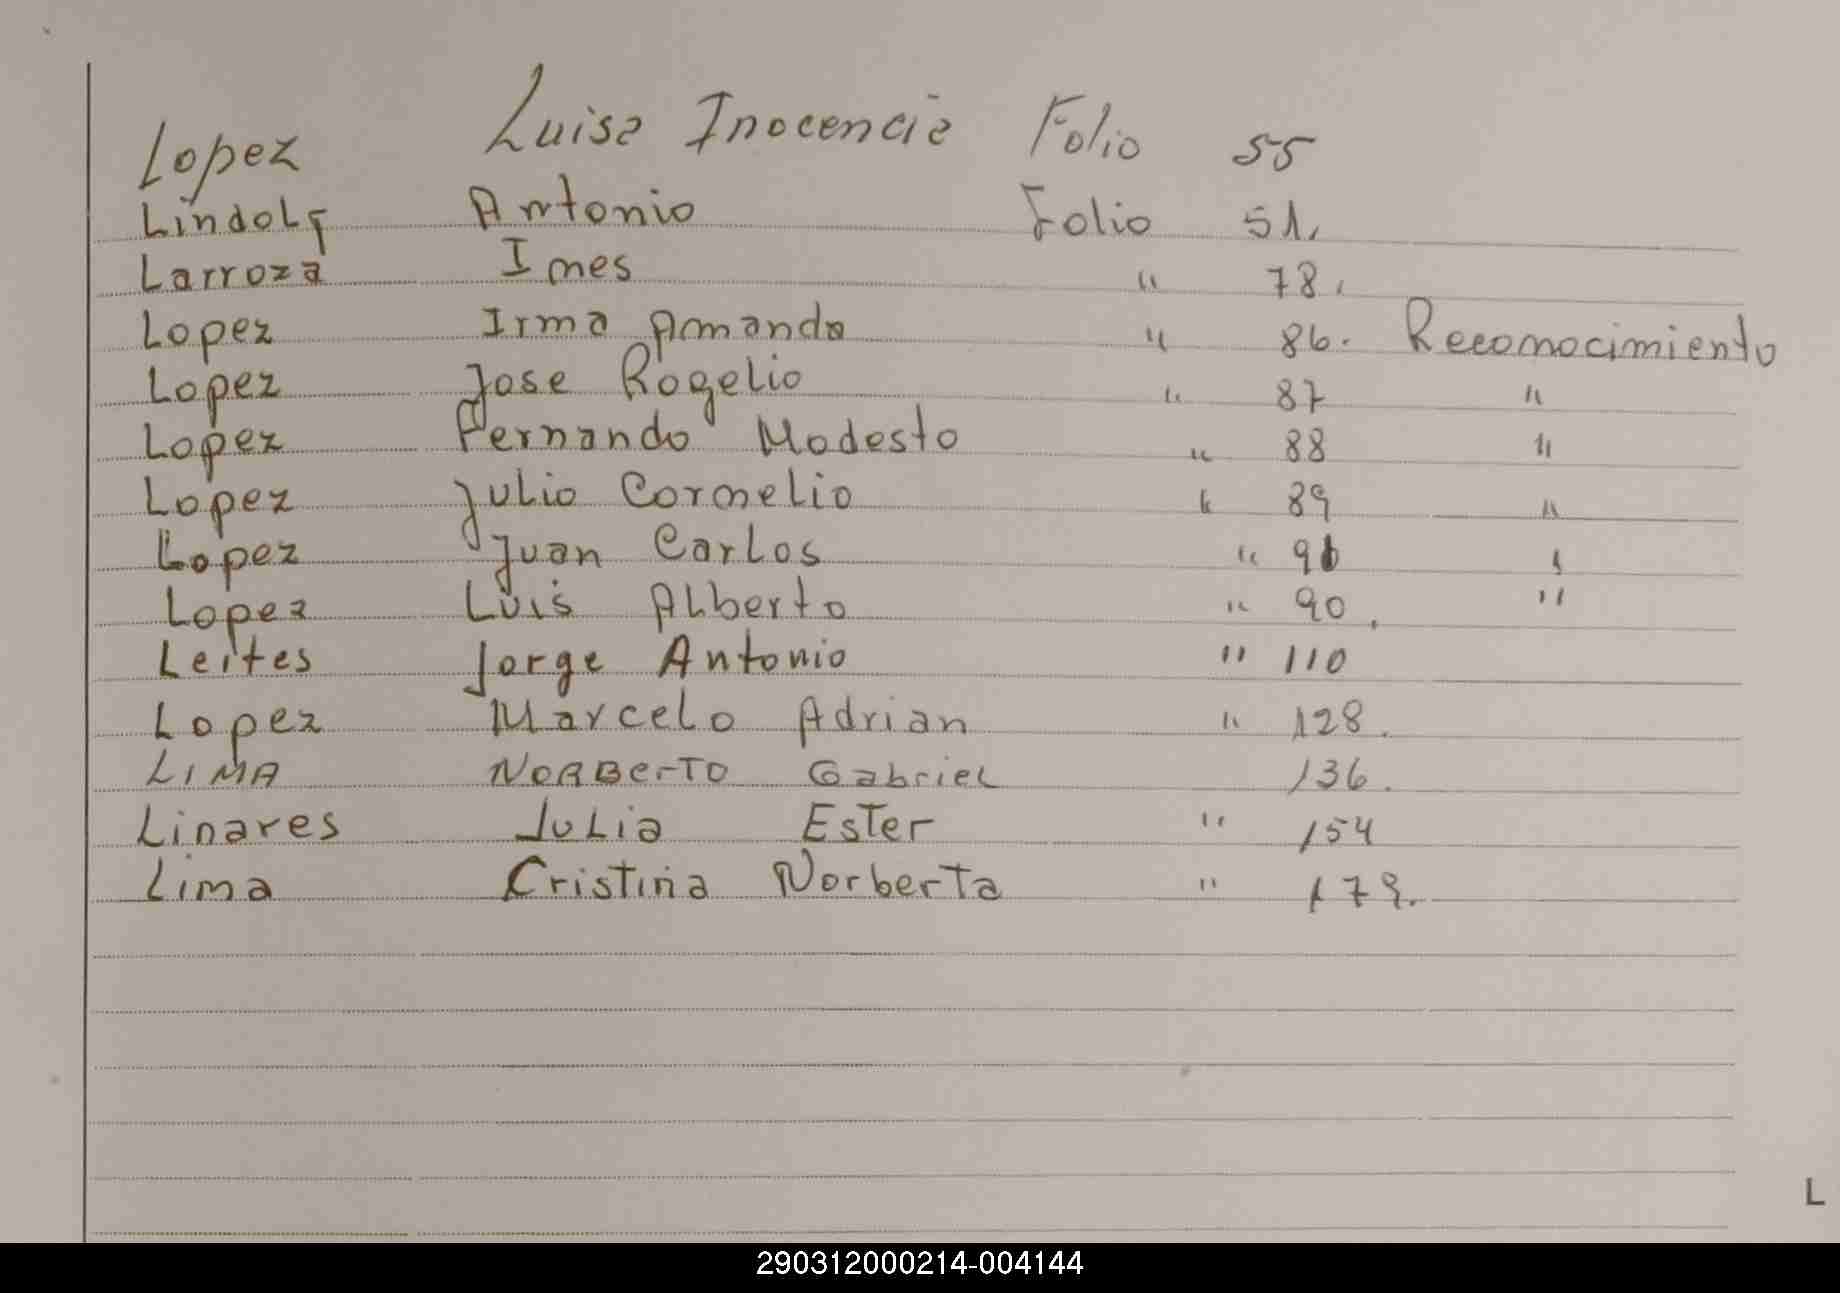 Lopez Luisa Inocencia Folio 55
Lindolf Antonio Folio 51.
Larroza Ines " 78.
Lopez Irma Amanda " 86. Reconocimiento
Lopez Jose Rogelio " 87 "
Lopez Fernando Modesto " 88 "
Lopez Julio Cornelio " 89 "
Lopez Juan Carlos " 91 "
Lopez Luis Alberto " 90. "
Leites Jorge Antonio " 110
Lopez Marcelo Adrian " 128.
LIMA NORBERTO Gabriel 136.
Linares Julia Ester " 154
Lima Cristina Norberta " 179.
L
290312000214-004144